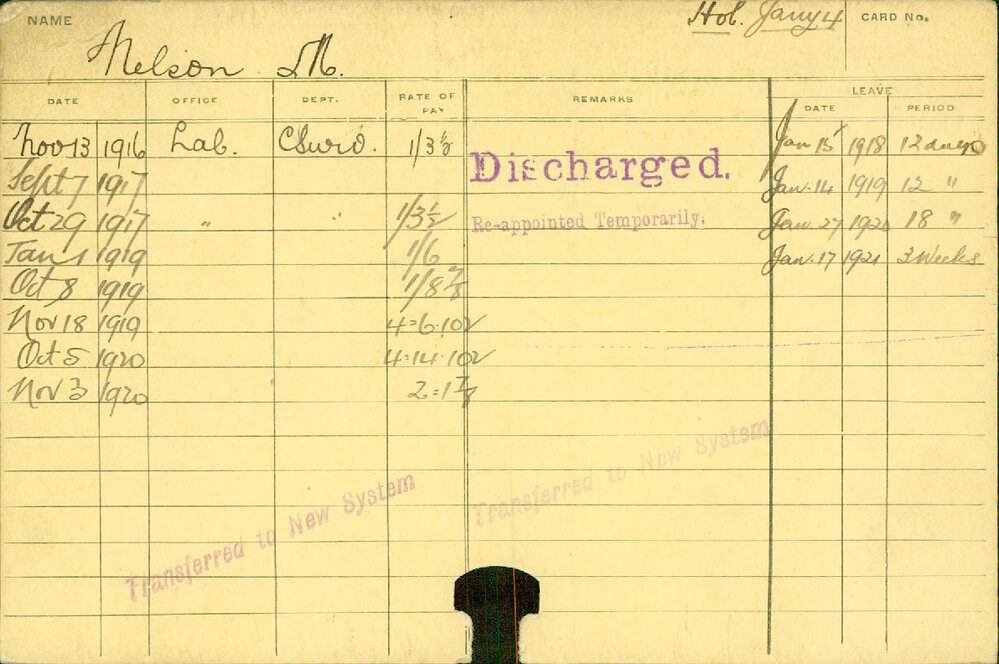 NAME Nelson M. Hol. Jany 4 CARD No.
DATE OFFICE DEPT. RATE OF PAY REMARKS LEAVE DATE PERIOD
Nov 13 1916 Lab. 1/3 ½ Jan 15 1918 12 days
Sept 7 1917 Discharged. Jan. 14 1919 12 "
Oct 29 1917 " " 1/3½ Re-appointed Temporarily. Jan. 27 1920 18 "
Jan 1 1919 1/6 Jan. 17 1921 3 Weeks
Oct 8 1919 1/8 ⅞
Nov 18 1919 4=6.10
Oct 5 1920 4=14.10
Nov 3 1920 2=1 ⅞
Transferred to New System
Transferred to New System